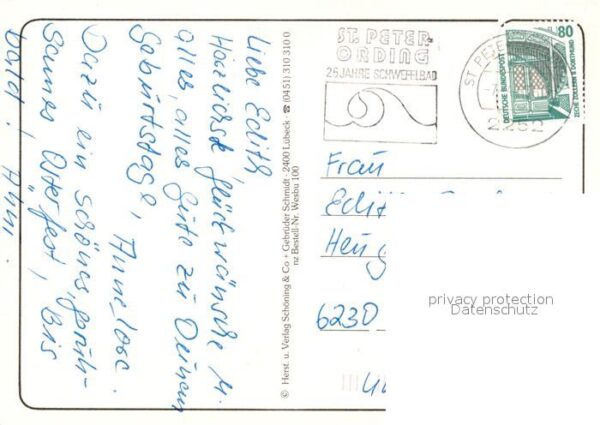 Liebe Edith,
Herzliche Glückwünsche u.
alles, alles Gute zu Deinem
Geburtstage,
Anneliese.
Dazu ein schönes, geruh-
sames Osterfest, bis
bald!
© Herst. u. Verlag Schöning & Co + Gebrüder Schmidt · 2400 Lübeck · ☎ (0451) 310 310 0
nz Bestell-Nr. Wesbu 100
ST. PETER-
ORDING
25 JAHRE SCHWEFELBAD
ST. PETE
2252
80
DEUTSCHE BUNDESPOST
ZECHE ZOLLERN II DORTMUND
Frau
Edit
6230
privacy protection
Datenschutz